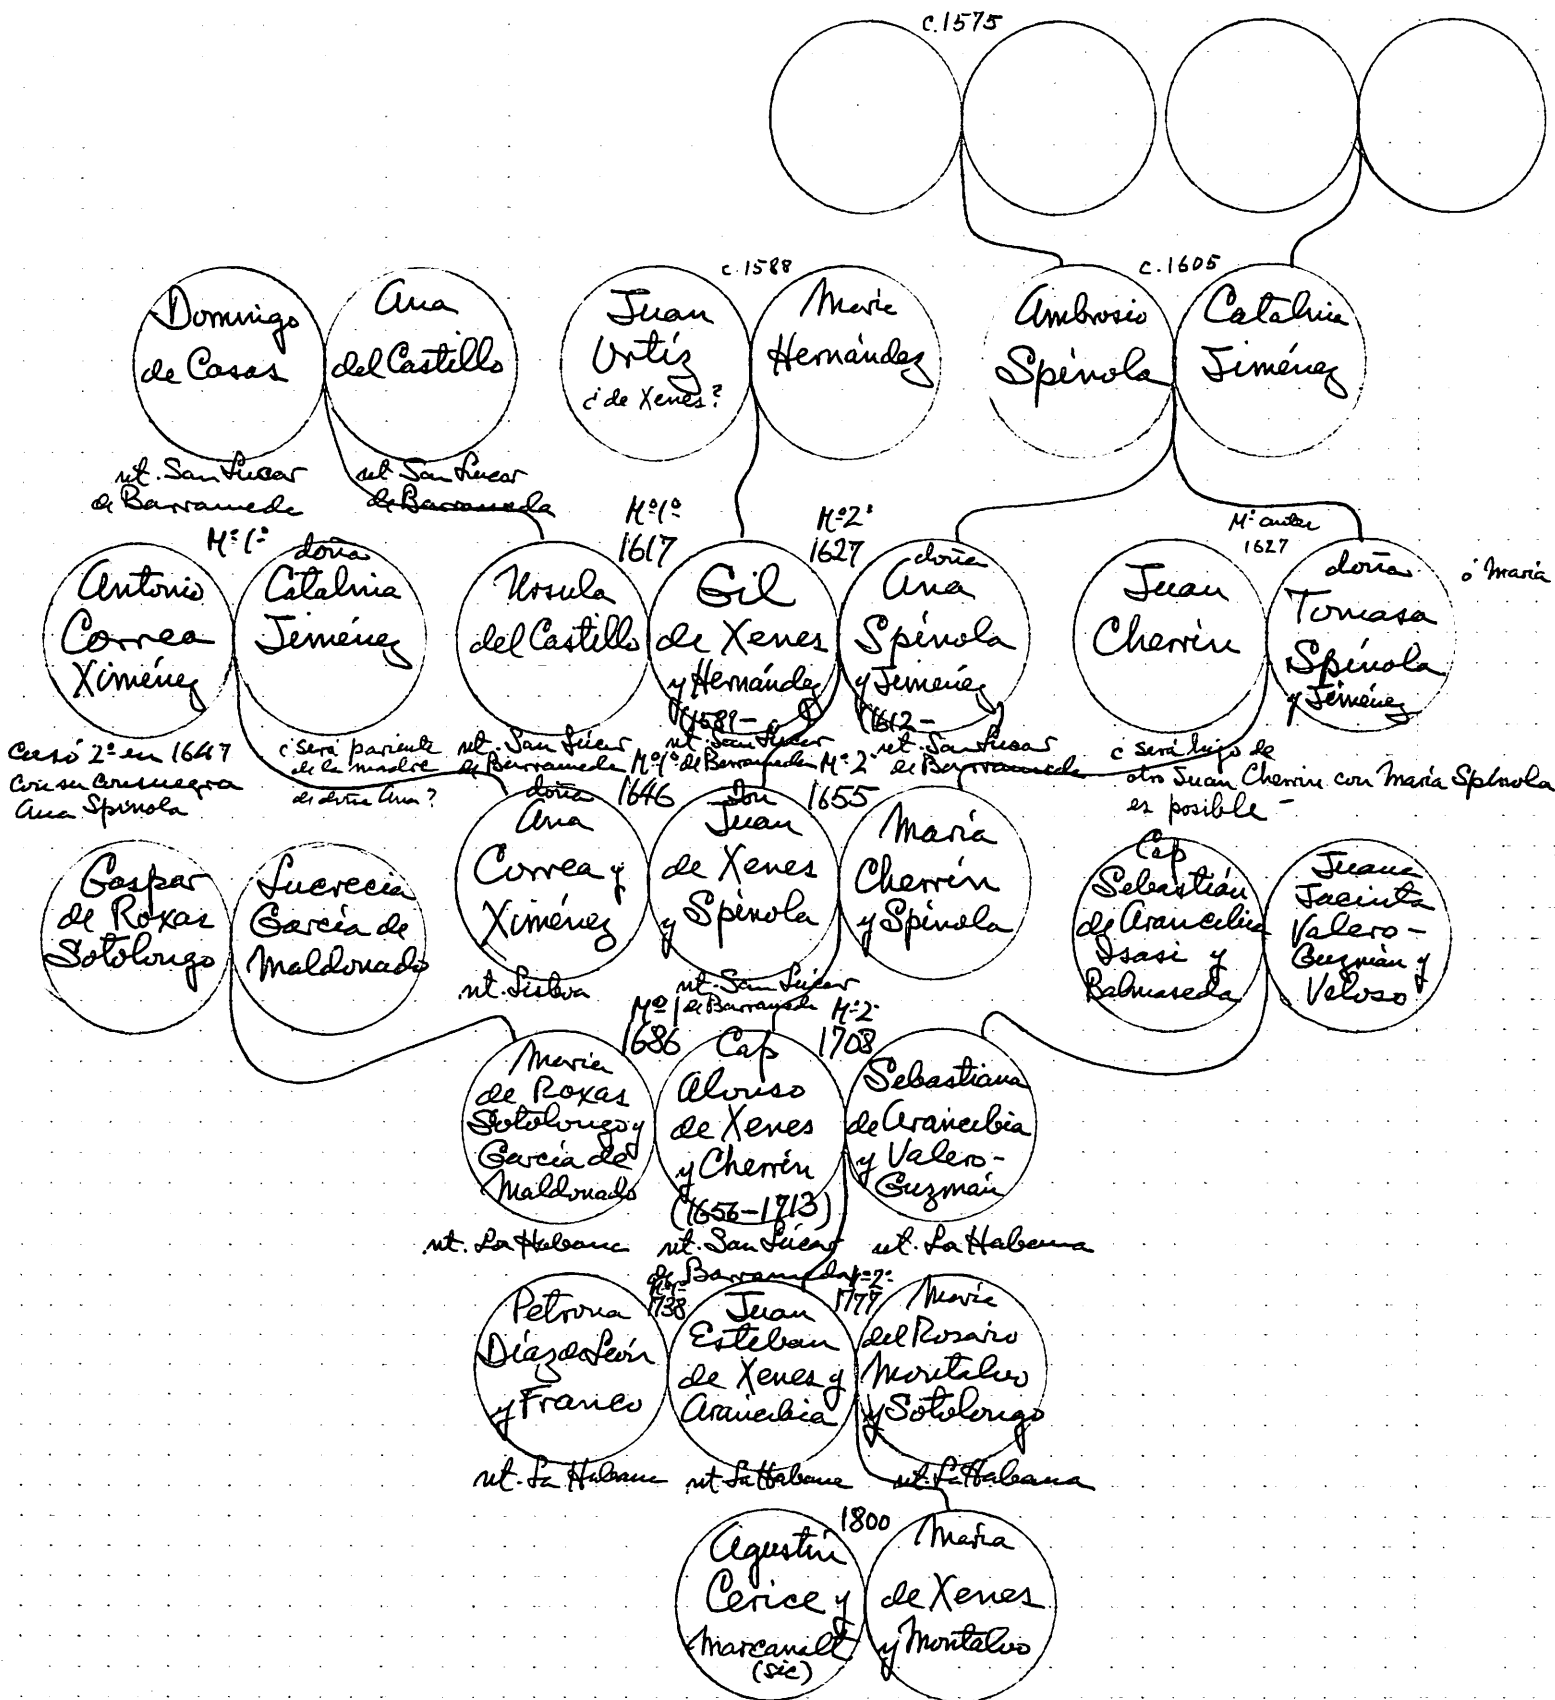 c.1575
c.1588
c.1605
Domingo
de Casas
Ana
del Castillo
Juan
Ortíz
¿de Xenes?
Marie
Hernández
Ambrosio
Spínola
Catalina
Jiménez
nt. San Lucar
de Barrameda
nt. San Lucar
de Barrameda
Mº1º
Antonio
Correa
Ximénez
doña
Catalina
Jiménez
Ursula
del Castillo
Mº1º
1617
Gil
de Xenes
y Hernández
(1589-
Mº2º
1627
doña
Ana
Spínola
y Jiménez
(1612-
Juan
Cherrín
Mº antes
1627
doña
Tomasa
Spínola
y Jiménez
ó María
Casó 2º en 1647
con su consuegra
Ana Spínola
¿será pariente
de la madre
de doña Ana?
nt. San Lúcar
de Barrameda
nt. San Lucar
de Barrameda
nt. San Lucar
de Barrameda
¿será hijo de
otro Juan Cherrín con María Spínola
es posible -
Gaspar
de Roxas
Sotolongo
Lucrecia
García de
Maldonado
doña
Ana
Correa y
Ximénez
Mº1º
1646
don
Juan
de Xenes
y Spínola
Mº2º
1655
María
Cherrín
y Spínola
Cap
Sebastián
de Arancibia
Isasi y
Balmaseda
Juana
Jacinta
Valero-
Guzmán y
Veloso
nt. Lisboa
nt. San Lúcar
de Barrameda
María
de Roxas
Sotolongo y
García de
Maldonado
Mº1
1686
Cap
Alonso
de Xenes
y Cherrín
(1656-1713)
Mº2º
1708
Sebastiana
de Arancibia
y Valero-
Guzmán
nt. La Habana
nt. San Lúcar
de Barrameda
nt. La Habana
Petrona
Díaz de León
y Franco
Mº1º
1738
Juan
Esteban
de Xenes y
Arancibia
Mº2º
1777
María
del Rosario
Montalvo
y Sotolongo
nt. La Habana
nt. La Habana
nt. La Habana
Agustín
Cerice y
Marcanalt
(sic)
1800
María
de Xenes
y Montalvo